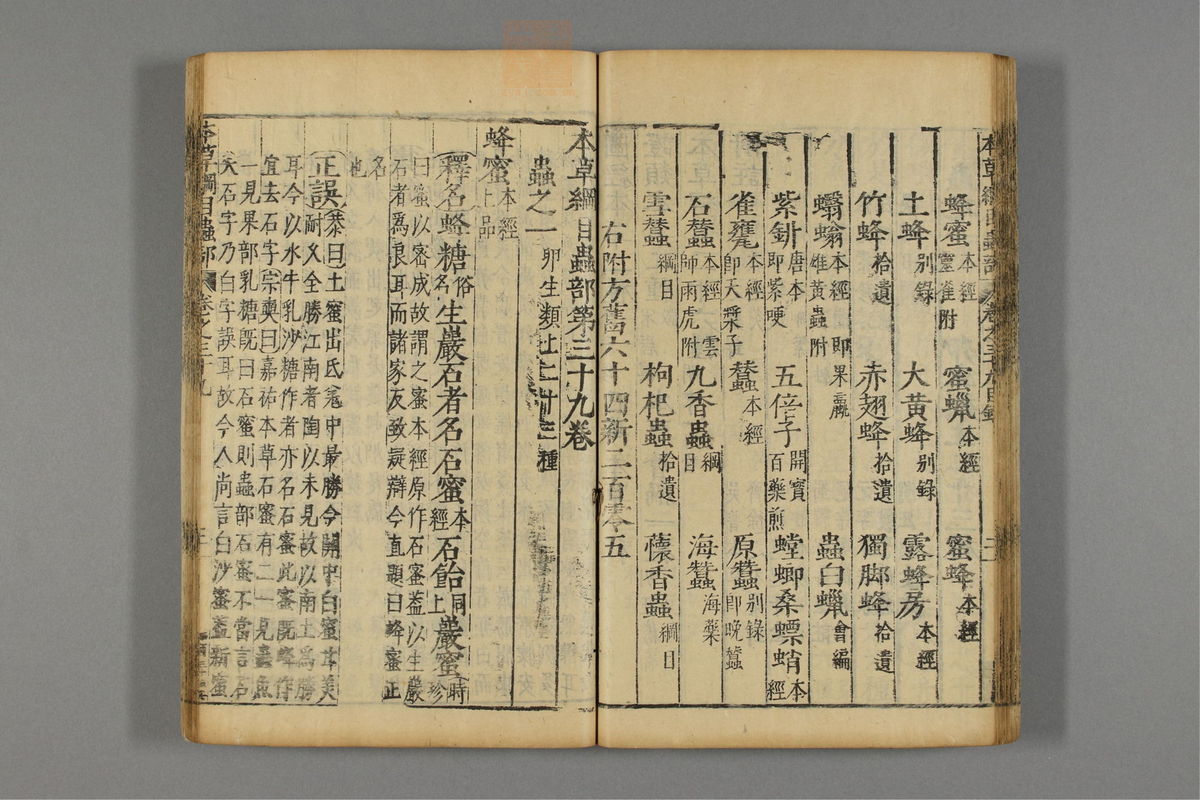 本草綱目蟲部 卷之三十九目錄 二
蜂蜜本經靈雀附 蜜蠟本經 蜜蜂本經
土蜂別錄 大黃蜂別錄 露蜂房本經
竹蜂拾遺 赤翅蜂拾遺 獨脚蜂拾遺
蠮螉本經即果蠃雄黃蟲附 蟲白蠟會編
紫鉚唐本即紫哽 五倍子開寶百藥煎 螳蜋桑螵蛸本經
雀甕本經即天漿子 蠶本經 原蠶別錄即晚蠶
石蠶本經雲師雨虎附 九香蟲綱目 海蠶海藥
雪蠶綱目 枸杞蟲拾遺 蘹香蟲綱目
右附方舊六十四新二百零五
本草綱目蟲部第三十九卷
蟲之一卵生類上二十三種
蜂蜜本經上品
釋名蜂糖俗名生巖石者名石蜜本經石飴同上巖蜜時珍
曰蜜以密成故謂之蜜本經原作石蜜蓋以生巖
石者爲良耳而諸家反致疑辯今直題曰蜂蜜正
名也
正誤恭曰土蜜出氐羌中最勝今關中白蜜甘美
耐久全勝江南者陶以未見故以南土爲勝
耳今以水牛乳沙糖作者亦名石蜜此蜜既蜂作
宜去石字宗奭曰嘉祐本草石蜜有二一見蟲魚
一見果部乳糖既曰石蜜則蟲部石蜜不當言石
矣石字乃白字誤耳故今人尚言白沙蜜蓋新蜜
本草綱目蟲部 卷之三十九